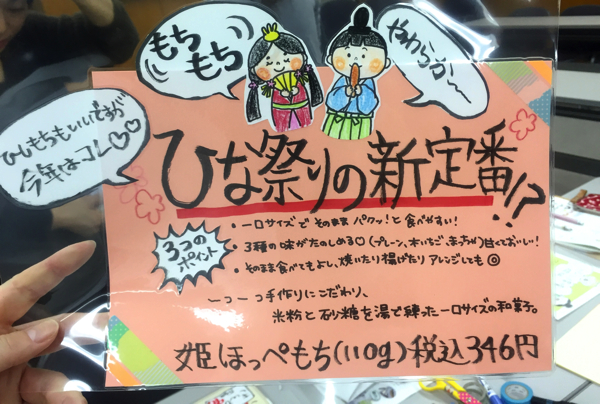 もち
もち
やわらか〜
ひしもちもいいですが
今年はコレ♡♡
ひな祭りの新定番!?
3つの
ポイント
・一口サイズでそのままパクッ!と食べやすい!
・3種の味がたのしめる♡(プレーン、木いちご、まっ茶)甘くておいしい!
・そのまま食べてもよし、焼いたり揚げたりアレンジしても◎
一コ一コ手作りにこだわり、
米粉と砂糖を湯で練った一口サイズの和菓子。
姫ほっぺもち(110g)税込346円